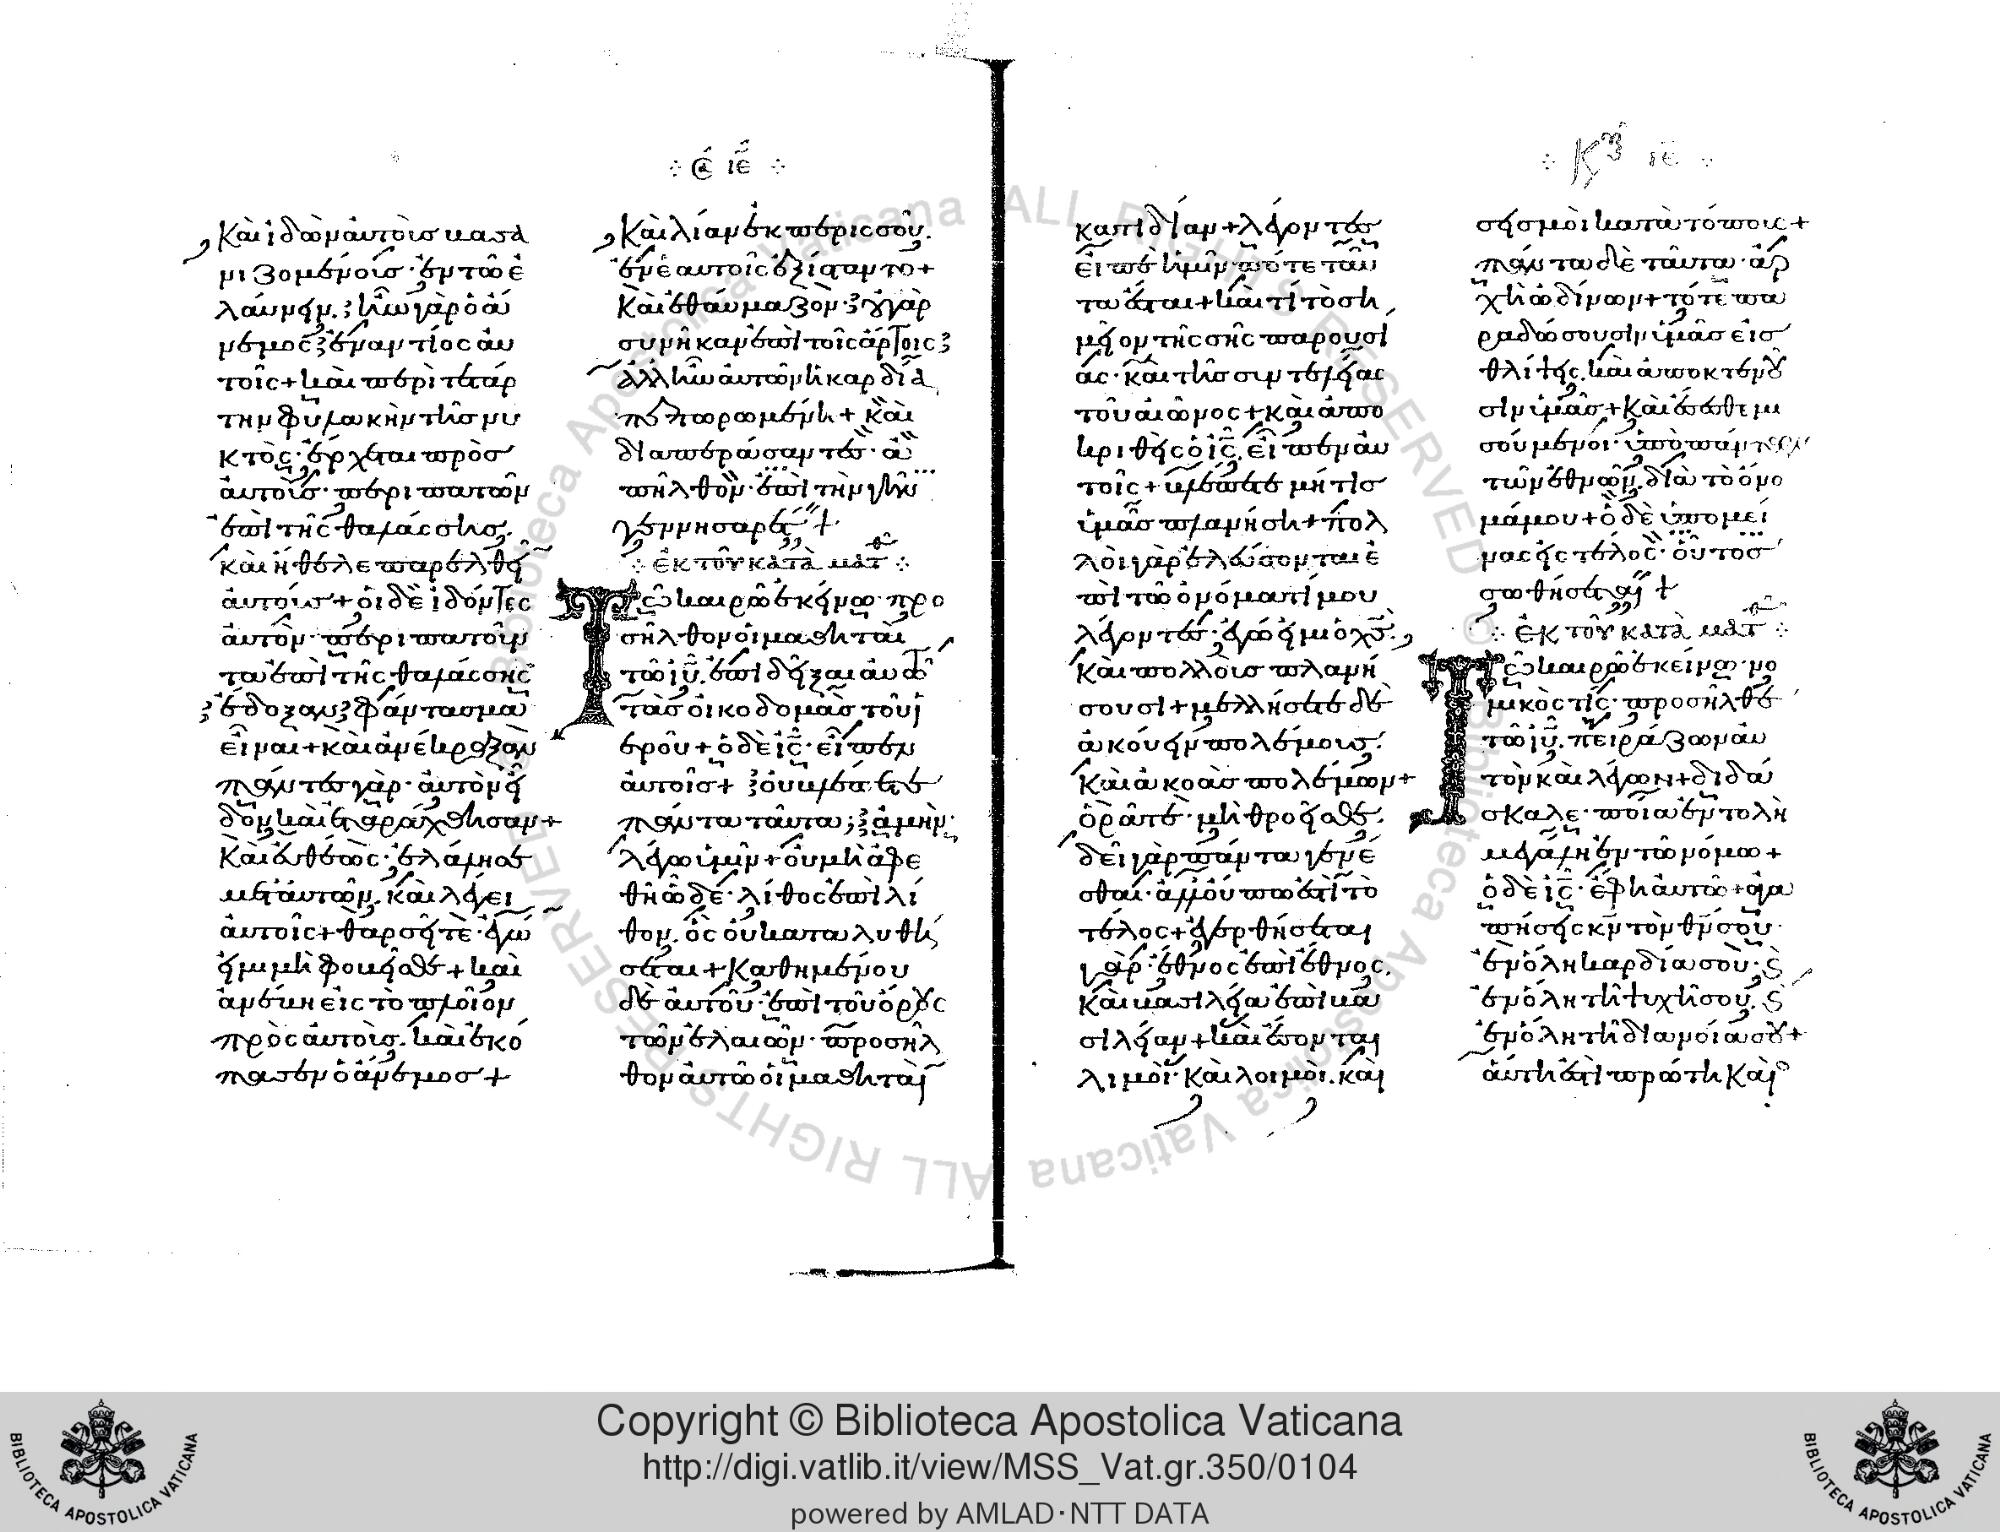 Καὶ ἰδὼν αὐτοὺσ βασα
νιζομένουσ· ἐν τῶ ἐ
λαύνειν. ἦν γὰρ ὁ ἄ
νεμος ἐναντίος αὐ
τοῖς + καὶ περὶ τετάρ
την φυλακὴν τῆσ νυ
κτὸς· ἔρχεται πρὸσ
αὐτοὺσ· περιπατῶν
ἐπὶ τῆς θαλάσσησ.
καὶ ἤθελε παρελθεῖ
αὐτούσ + οἱ δὲ ἰδόντες
αὐτὸν· περιπατοῦν
τα ἐπὶ τῆς θαλάσσης
ἔδοξαν φάντασμα
εἶναι + καὶ ἀνέκραξαν
πάντες γὰρ· αὐτὸν εἶ
δον καὶ ἐταράχθησαν +
Καὶ εὐθέως· ἐλάλησε
μετ αὐτῶν. καὶ λέγει
αὐτοῖς + θαρσεῖτε· ἐγώ
εἰμι μὴ φοβεῖσθε + καὶ
ἀνέβη εἰς τὸ πλοῖον
πρὸς αὐτούσ. καὶ ἐκό
πασεν ὁ ἄνεμοσ +
·:· Σα ιε ·:·
Καὶ λίαν ἐκ περισσοῦ.
ἐν ἑαυτοῖς ἐξίσταντο +
Καὶ ἐθαύμαζον· οὐ γὰρ
συνῆκαν ἐπὶ τοῖς ἄρτοις
ἀλλ ἦν αὐτῶν ἡ καρδία
πεπωρωμένη + Καὶ
διαπεράσαντες· ἀ
πῆλθον· ἐπὶ τὴν γῆν
γεννησαρέτ +
·:· ἐκ τοῦ κατὰ ματθ ·:·
Τω καιρῶ ἐκείνω· προ
σῆλθον οἱ μαθηταὶ
τῶ ιυ. ἐπιδεῖξαι αὐτῶ
τὰσ οἰκοδομὰσ τοῦ ἱ
εροῦ + ὁ δὲ ις· εἶπεν
αὐτοῖσ + οὐ βλέπετε
πάντα ταῦτα; ἀμὴν·
λέγω ὑμῖν + οὐ μὴ ἀφε
θῆ ὧδε· λίθος ἐπὶ λί
θον. ὃς οὐ καταλυθή
σεται + Καθημένου
δὲ αὐτοῦ· ἐπὶ τοῦ ὄρους
τῶν ἐλαιῶν· προσῆλ
θον αὐτῶ οἱ μαθηταὶ
κατ ιδίαν + λέγοντες
εἰπὲ ἡμῖν πότε ταῦ
τα ἔσται + καὶ τί τὸ ση
μεῖον τῆς σῆς παρουσί
ας· καὶ τῆσ συντελείας
τοῦ αἰῶνος + καὶ ἀπο
κριθεὶς ὁ ις. εἶπεν αὐ
τοῖς + βλέπετε μή τίσ
ὑμᾶσ πλανήση + πολ
λοὶ γὰρ ἐλεύσονται ἐ
πὶ τῶ ὀνόματί μου
λέγοντες· ἐγώ εἰμι ὁ χς.
Καὶ πολλοὺσ πλανή
σουσι + μελλήσετε δὲ
ἀκούειν πολέμουσ.
Καὶ ἀκοὰσ πολέμων +
ὁρᾶτε· μὴ θροεῖσθε.
δεῖ γὰρ πάντα γενέ
σθαι· ἀλλ οὔπω ἐστὶ τὸ
τέλος + ἐγερθήσεται
γὰρ· ἔθνος ἐπὶ ἔθνος.
Καὶ βασιλεία ἐπὶ βα
σιλείαν + καὶ ἔσονται
λιμοὶ· Καὶ λοιμοὶ. καὶ
·:· Κυ ιε ·:·
σεισμοὶ κατὰ τόπους +
πάντα δὲ ταῦτα· ἀρ
χὴ ὠδίνων + τότε πα
ραδώσουσιν ὑμᾶσ εἰσ
θλίψεις. καὶ ἀποκτενοῦ
σιν ὑμᾶσ + Καὶ ἔσεσθε μι
σούμενοι· ὑπὸ πάντων
τῶν ἐθνῶν. διὰ τὸ ὄνο
μά μου + ὁ δὲ ὑπομεί
νας εἰς τέλος· οὗτοσ
σωθήσεται +
·:· ἐκ τοῦ κατὰ ματθ ·:·
Τω καιρῶ ἐκείνω· νο
μικὸς τίς· προσῆλθε
τῶ ιυ. πειράζων αὐ
τὸν καὶ λέγων + διδά
σκαλε· ποία ἐντολὴ
μεγάλη ἐν τῶ νόμω +
ὁ δὲ ις· ἔφη αὐτῶ + ἀγα
πήσεις κν τὸν θν σου·
ἐν ὅλη καρδία σου· ϛ
ἐν ὅλη τῆ ψυχῆ σου. ϛ
ἐν ὅλη τῆ διανοία σου +
αὕτη ἐστὶ πρώτη Καὶ
Copyright © Biblioteca Apostolica Vaticana
http://digi.vatlib.it/view/MSS_Vat.gr.350/0104
powered by AMLAD·NTT DATA
BIBLIOTECA APOSTOLICA VATICANA
BIBLIOTECA APOSTOLICA VATICANA
Biblioteca Apostolica Vaticana ALL RIGHTS RESERVED © Biblioteca Apostolica Vaticana ALL RIGHTS RESERVED ©